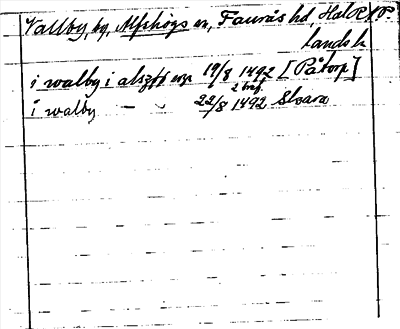 Vallby, by, Alfshögs sn, Faurås hd, Hall
landsk
i walby i alszþ 19/8 1492 [Påtorp]
2 traf.
i walby — 〃 22/8 1492 Skara